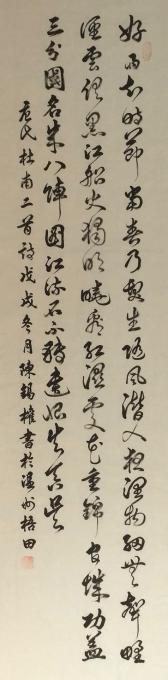 好雨知時節當春乃發生隨風潛入夜潤物細無聲野
徑雲俱黑江船火獨明曉看紅濕處花重錦官城功蓋
三分國名成八陣圖江流石不轉遺恨失吞吳
唐人杜甫二首詩戊戌冬月陳錫權書於溫州梧田